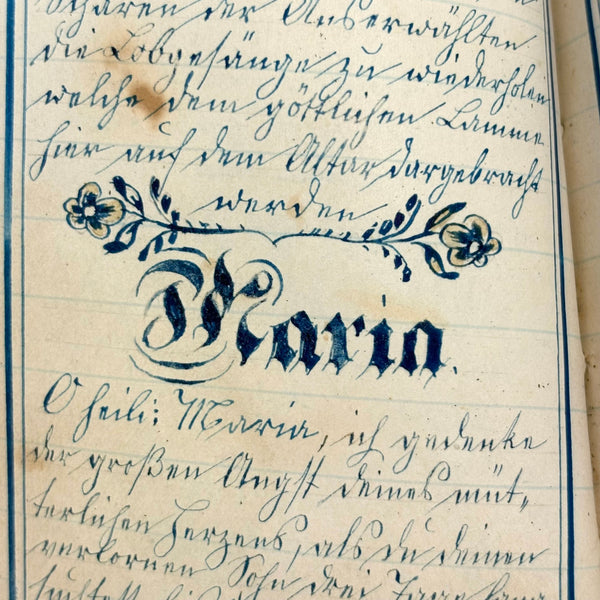 Scharen der Auserwählten
die Lobgesänge zu wiederholen
welche dem göttlichen Lamme
hier auf dem Altar dargebracht
werden
Maria.
O heili: Maria, ich gedenke
der großen Angst deines müt„
terlichen Herzens, als du deinen
verlornen Sohn drei Tage lang
suchtest